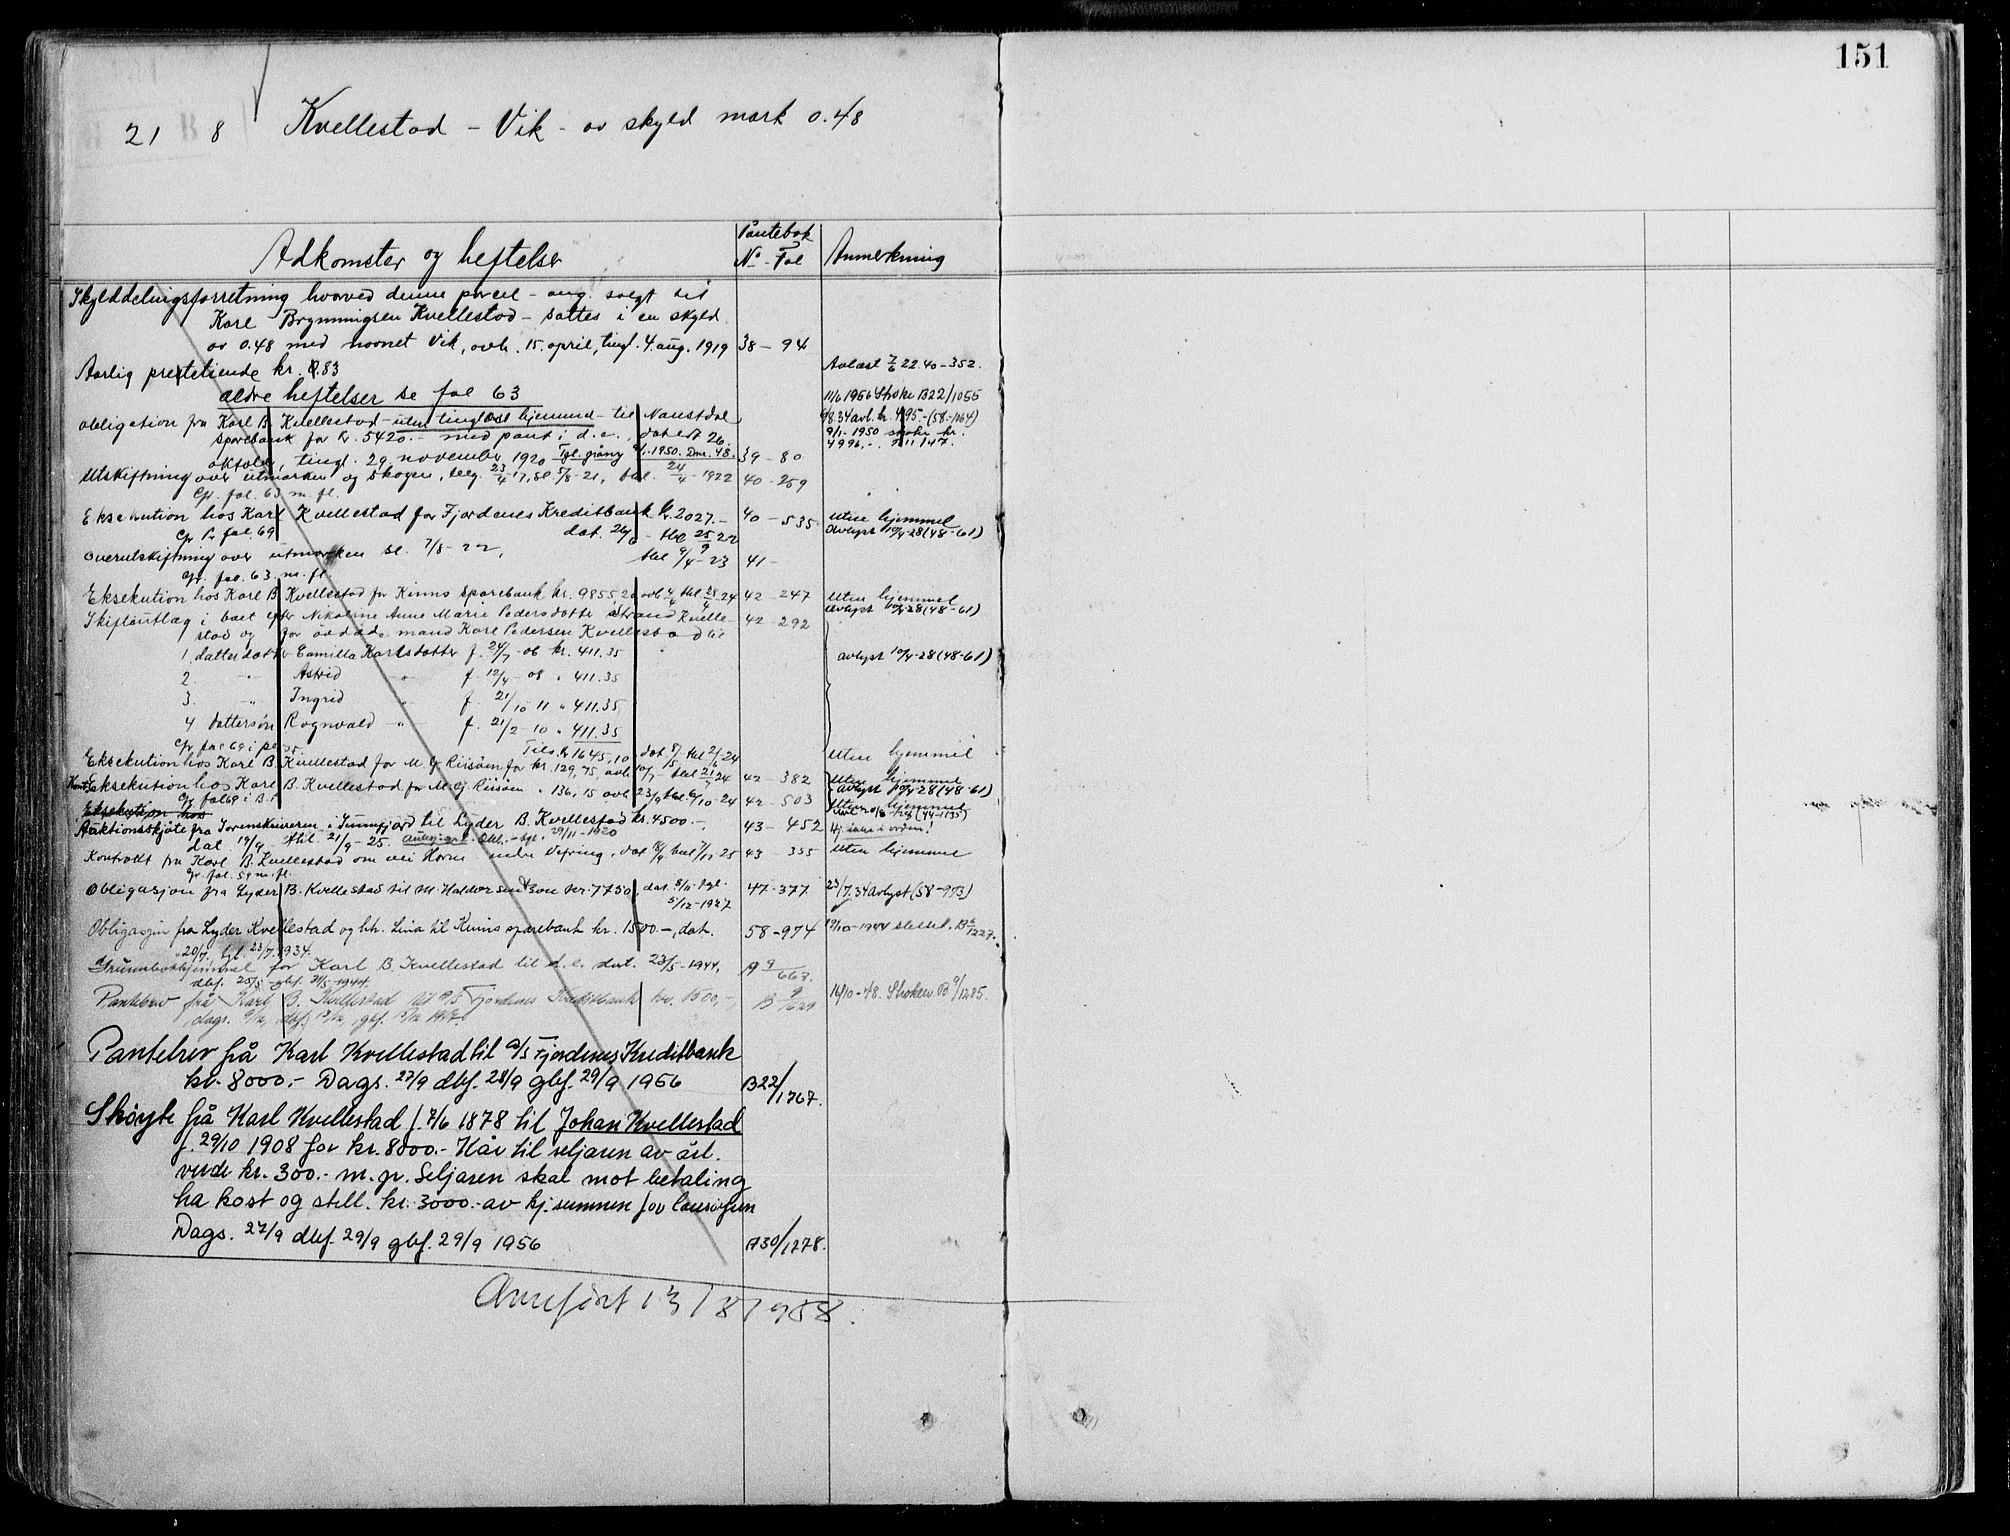 151
21 8 Kvellestad - Vik - av skyld mark 0.48
Adkomster og heftelser
Pantebok
No - Fol
Anmerkning
Skylddelingsforretning hvorved denne parcel - ang. solgt til
Karl Brynningsen Kvellestad - sættes i en skyld
av 0.48 med navnet Vik, avh. 15. april, tingl. 4. aug. 1919 38 - 94
Aarlig prestetiende kr. 0.83 Avløst 7/6 22. 40 - 352.
ældre heftelser se fol 63 11/6 1956 Stroke B22/1055
obligation fra Karl B. Kvellestad - uten tinglæst hjemmel - til Naustdal 9.8.34 avl. kr. 495 - (58-1064)
sparebank for kr. 5420.- med pant i d.e., datert 26. 9/1-1950 stroke kr.
oktober, tingl. 29. november 1920 Tgl. gjång 9/1.1950. Dnr. 48. 39 - 80 4996,-
Utskiftning over utmarken og skogen, beg. 23/4 17, sl. 5/8-21, tgl. 24/4-1922 40 - 259
Cfr. fol. 63 m. fl.
Eksekution hos Karl Kvellestad for Fjordenes Kreditbank kr. 2027.- 40 - 535 uten hjemmel
Cfr. fol. 69 dat. 26/6 - tbl 25/9 22 avlyst 10/4-28 (48-61)
Overutskiftning over utmarken sl. 7/8-22, tbl 9/4-23 41 -
cfr. fol. 63 m. fl
Eksekution hos Karl B. Kvellestad for Kinns Sparebank kr. 9855,20 avh 4/4 tbl. 28/4 24 42 - 247 Uten hjemmel
avlyst 10/4-28 (48-61)
Skifteutlæg i boet efter Nikoline Anne Marie Pedersdatter Strand Kvelle- 42 - 292
stad og før avdøde mand Karl Pedersen Kvellestad til
1. datterdatter Camilla Karlsdatter f. 24/7-06 kr. 411.35 avlyst 10/4-28 (48-61)
2. " Astrid " f. 12/4-08 " 411.35
3. " Ingrid " f. 21/10 11 " 411.35
4 dattersøn Rognvald " f. 21/2-10 " 411.35
Tils. kr 1645,10 dat. 8/5 tbl 2/6 24
Eksekution hos Karl B. Kvellestad for M. G. Riisøen for kr. 129,75, avh 10/7 - tbl 21/7 24 42 - 382 uten hjemmel
Eksekution hos Karl B. Kvellestad for M. G. Riisøen " 136,15 avh 23/9 tbl 6/10-24 42 - 503 Uten hjemmel
cfr fol 69 i B.1 avlyst 10/4-28 (48-61)
Eksekution hos
Auktionsskjøte fra Sorenskriveren i Sunnfjord til Lyder B. Kvellestad kr. 4500.-, 43 - 452 Hj. ikke i orden!
dat. 19/9 tbl. 21/9-25.
Kontrakt fra Karl B. Kvellestad om vei Horne - indre Vefring, dat 8/9 tbl 7/12 25 43 - 355 Uten hjemmel
Cfr. fol. 59 m. fl.
Obligasjon fra Lyder B. Kvellestad til M. Halvorsen & Søn kr. 7750, dat. 8/11 - tgl. 47-377 23/7.34 avlyst (58-973)
5/12-1927
Obligasjon fra Lyder Kvellestad og htr. Lina til Kinns sparebank kr. 1500.-, dat. 58-974 19/10-1944 slettet. B6/1227.
20/7, tgl. 23/7.1934.
Grunnbokshjemmel for Karl B. Kvellestad til d.e. dat. 23/5-1944, A9/667.
dbf. 25/5 - gbf. 31/5-1944.
Pantebrev frå Karl B. Kvellestad til A/S Fjordenes Kreditbank kr. 1500,-, B9/1629 16/10-48. Stroken B9/1285.
dags. 9/12, dbf. 13/12, gbf. 15/12 1947.
Pantebrev frå Karl Kvellestad til A/S Fjordenes Kreditbank
kr. 8000.- Dags. 27/9 dbf. 28/9 gbf. 29/9 1956 B22/1767.
Skøyte frå Karl Kvellestad f. 7/6 1878 til Johan Kvellestad
f. 29/10 1908 for kr. 8000.- Kår til seljaren av årl.
verde kr. 300.- m. gr. Seljaren skal mot betaling
ha kost og stell. kr. 3000.- av kj. summen for lausøyren
Dags. 27/9 dbf. 29/9 gbf. 29/9 1956 A30/1278.
Overført 13/8 1958.